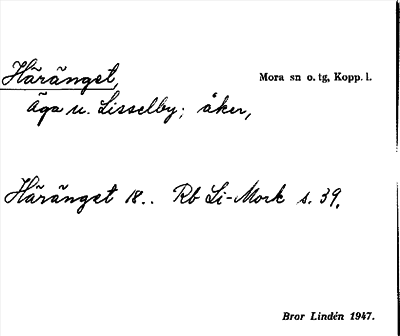 Häränget, Mora sn o. tg, Kopp. l.
äga u. Lisselby; åker,
Häränget 18.. Rb Li-Mork s. 39.
Bror Lindén 1947.